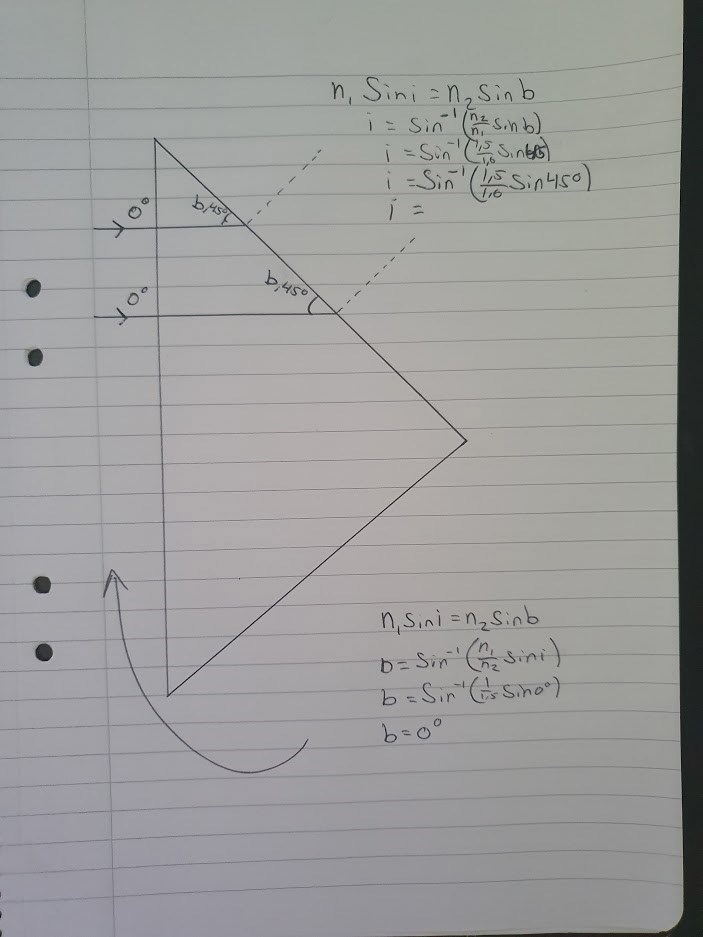 n₁ Sin i = n₂ Sin b
i = Sin⁻¹(n₂/n₁ Sin b)
i = Sin⁻¹(1,5/1,0 Sin 45)
i = Sin⁻¹(1,5/1,0 Sin 45°)
i =
0°
b, 45°
0°
b, 45°
n₁ Sin i = n₂ Sin b
b = Sin⁻¹(n₁/n₂ Sin i)
b = Sin⁻¹(1/1,5 Sin 0°)
b = 0°